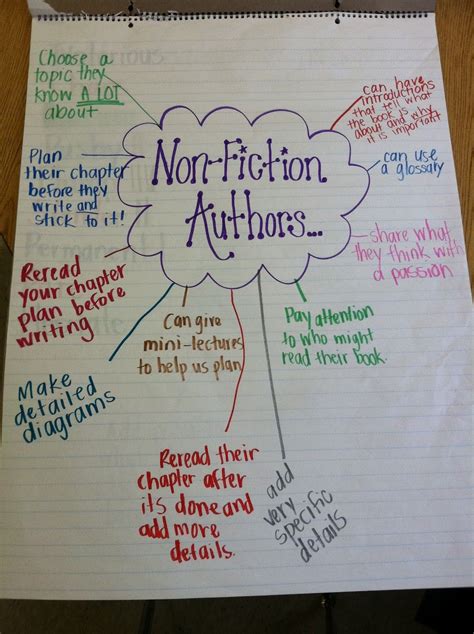 Non-Fiction
Authors...
Choose a
topic they
know A LOT
about
Plan
their chapter
before they
write and
stick to it!
Reread
your chapter
plan before
writing
Make
detailed
diagrams
Can give
mini-lectures
to help us plan
Reread their
chapter after
its done and
add more
details.
add
very
specific
details
Pay attention
to who might
read their book
share what
they think with
a passion
can use
a glossary
can have
introductions
that tell what
the book is
about and why
it is important